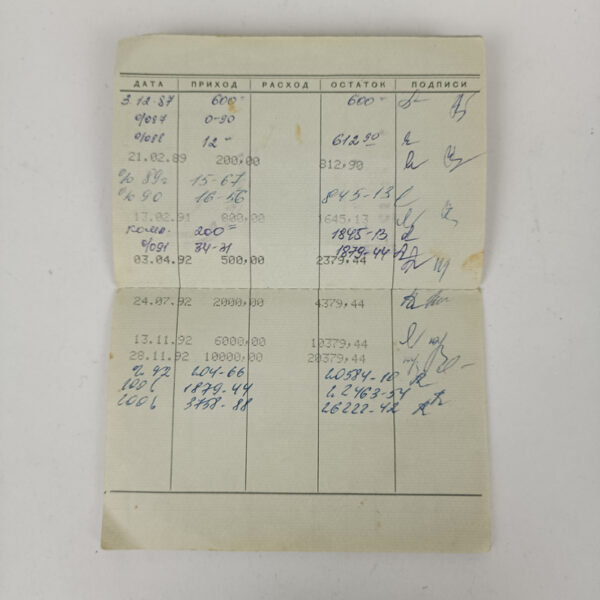 ДАТА ПРИХОД РАСХОД ОСТАТОК ПОДПИСИ
3.12.87 600- 600-
%87 0-90
%88 12- 612 90
21.02.89 200,00 812,90
% 89 15-67
% 90 16-56 845-13
13.02.91 800,00 1645,13
комп. 200= 1845-13
%91 34-31 1879-44
03.04.92 500,00 2379,44
24.07.92 2000,00 4379,44
13.11.92 6000,00 10379,44
28.11.92 10000,00 20379,44
% 92 204-66 20584-10
1879-44 22463-54
3758-88 26222-42